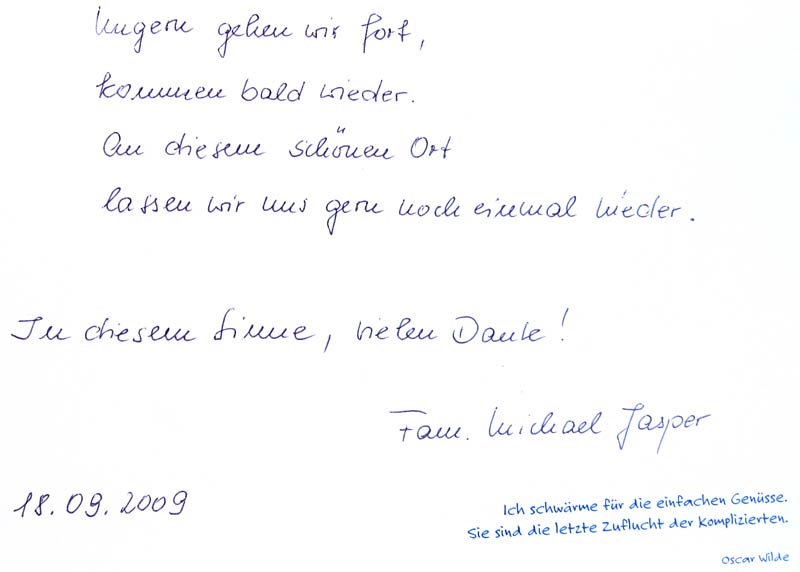 Ungern gehen wir fort,
kommen bald wieder.
An diesem schönen Ort
lassen wir uns gern noch einmal nieder.
In diesem Sinne, vielen Dank!
Fam. Michael Jasper
18.09.2009
Ich schwärme für die einfachen Genüsse.
Sie sind die letzte Zuflucht der Komplizierten.
Oscar Wilde